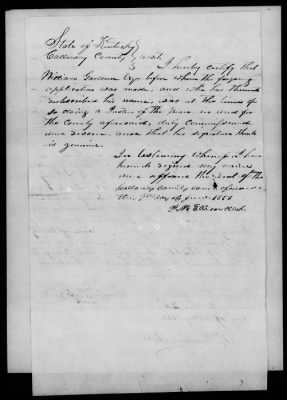 State of Kentucky
Calloway County } Sct. I hereby certify that
William Gardner Esqr before whom the foregoing
application was made, and who has thereunto
subscribed his name, was at the time of
so doing a Justice of the Peace in and for
the County aforesaid, duly Commissioned
and sworn, and that his signature thereto
is genuine.
In testimony whereof I have
hereunto signed my name
and affixed the seal of the
Calloway County Court
day of June 1851
Clerk